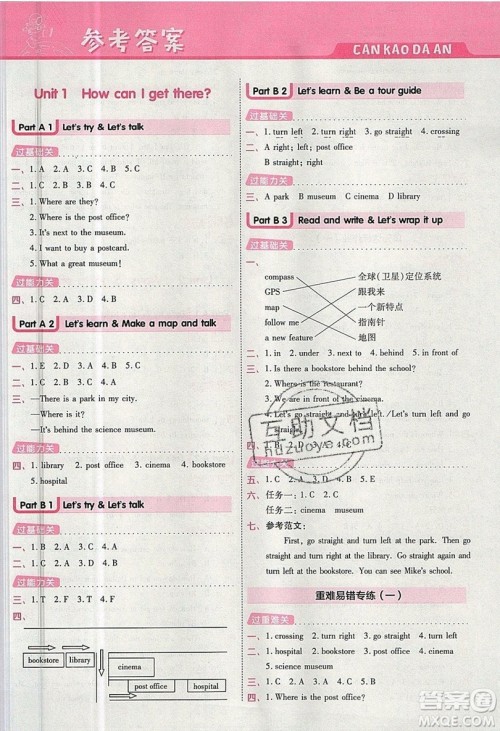 参考答案
CAN KAO DA AN
Unit 1 How can I get there?
Part A 1 Let's try & Let's talk
过基础关
一、1. A 2. A 3. C 4. B
三、1. Where are they?
2. Where is the post office?
3. It's next to the museum.
4. I want to buy a postcard.
5. What a great museum!
过能力关
四、1. C 2. A 3. D 4. B
Part A 2 Let's learn & Make a map and talk
过基础关
一、1. E 2. D 3. A 4. C 5. B
三、—There is a park in my city.
—Where is it?
—It's behind the science museum.
过能力关
四、1. library 2. post office 3. cinema 4. bookstore
5. hospital
Part B 1 Let's try & Let's talk
过基础关
一、1. B 2. A 3. A 4. B 5. A
二、1. C 2. A 3. D 4. B
过能力关
三、1. T 2. F 3. T 4. F 5. T
四、
bookstore library
cinema
post office hospital
Part B 2 Let's learn & Be a tour guide
过基础关
一、1. turn left 2. turn right 3. go straight 4. crossing
二、A right; left; post office
B straight; right;
过能力关
三、A park B museum C cinema D library
Part B 3 Read and write & Let's wrap it up
过基础关
一、
compass 全球(卫星)定位系统
GPS 跟我来
map 一个新特点
follow me 指南针
a new feature 地图
二、1. in 2. under 3. next to 4. behind 5. in front of
三、1. Is there a bookstore behind the school?
2. Where is the restaurant?
3. We are in front of the cinema.
4. Let's go straight and turn left.
四、1. B 2. D 3. A
过能力关
五、1. C 2. B 3. A 4. D
六、任务一:
任务二:
七、参考范文:
First, go straight and turn left at the park. Then go
straight and turn right at the library. Go straight and turn
left at the bookstore. You can see Mike's home.
重难易错专练(一)
过重难关
一、1. crossing 2. turn left 3. turn right 4. go straight
二、1. hospital 2. bookstore 3. cinema 4. post office
5. science museum
三、1. B 2. D 3. A 4. C 5. E
四、1. Where is the post office?
互助文档
huzuoye.com
答案圈
MXQE.COM